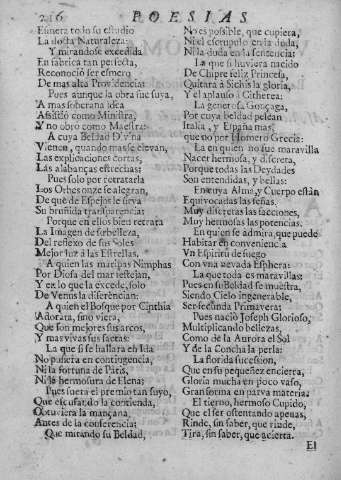 216 POESIAS
Esmero todo su estudio
La docta Naturaleza:
Y mirandose excedida
En fabrica tan perfecta,
Reconoció ser esmero
De mas alta Providencia:
Pues aunque la obra fue suya,
A mas soberana Idea
Assistió como Ministra,
Y no obro como Maestra:
A cuya Beldad Divina
Vienen, quando mas se elevan,
Las explicaciones cortas,
Las alabanças estrechas:
Pues solo por retratarla
Los Orbes onze se alegran,
De que de Espejos le sirva
Su bruñida transparencia:
Porque en ellos bien retrata
La Imagen de su belleza,
Del reflexo de sus Soles
Mejor luz à las Estrellas.
A quien las maritas Nimphas
Por Diosa del mar festejan,
Y en lo que la excede, solo
De Venus la diferencian:
A quien el Bosque por Cinthia
Adorara, sino viera,
Que son mejores sus arcos,
Y mas vivas sus saetas:
La que si se hallara en Ida
No pusiera en contingencia,
Ni la fortuna de Paris,
Ni la hermosura de Elena;
Pues fuera el premio tan suyo,
Que escusando la contienda,
Obtuviera la mançana,
Antes de la conferencia:
Que mirando su Beldad,
No es possible, que cupiera,
Ni el escrupulo en la duda,
Ni la duda en la sentencia:
La que si huviera nacido
De Chipre feliz Princesa,
Quitara á Sichis la gloria,
Y el aplauso à Citherea:
La generosa Gonçaga,
Por cuya beldad pelean
Italia, y España mas,
que no por Homero Grecia:
La en quien no fue maravilla
Nacer hermosa, y discreta,
Porque todas las Deydades
Son entendidas, y bellas:
En cuya Alma, y Cuerpo están
Equivocadas las señas,
Muy discretas las facciones,
Muy hermosas las potencias.
En quien se admira, que puede
Habitar en conveniencia
Un Espiritu de fuego
Con una nevada Esphera:
La que toda es maravillas:
Pues en su Beldad se muestra,
Siendo Cielo ingenerable,
Ser fecunda Primavera:
Pues nació Joseph Glorioso,
Multiplicando bellezas,
Como de la Aurora el Sol
Y de la Concha la perla:
La florida sucession,
Que en su pequeñez encierra,
Gloria mucha en poco vaso,
Gran forma en parva materia:
El tierno, hermoso Cupido,
Que el ser ostentando apenas,
Rinde, sin saber, que rinde,
Tira, sin saber, que acierta.
El